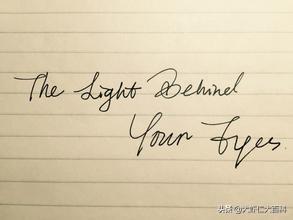 The Light Behind
Your Eyes.
头条 @大虾仁大百科